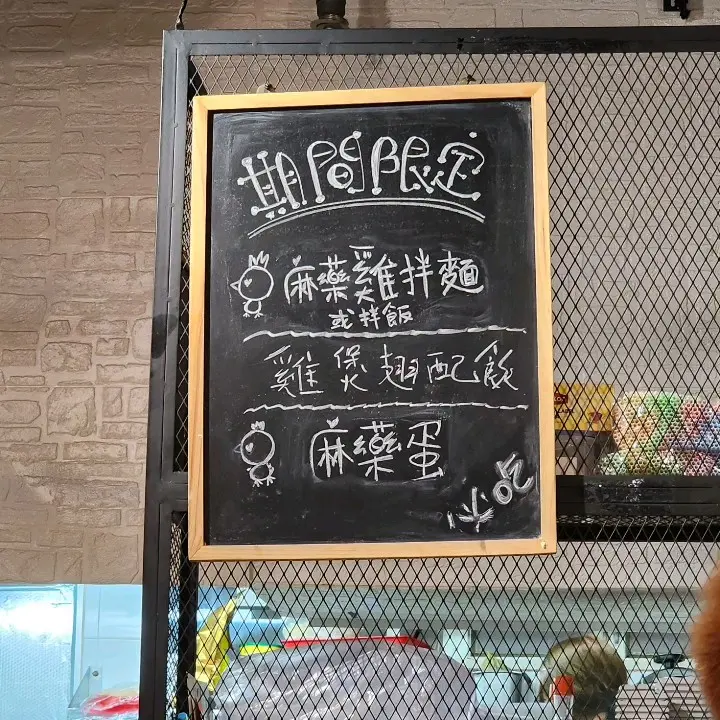 期間限定
麻藥雞拌麵
或拌飯
雞煲翅配飯
麻藥蛋
小吃